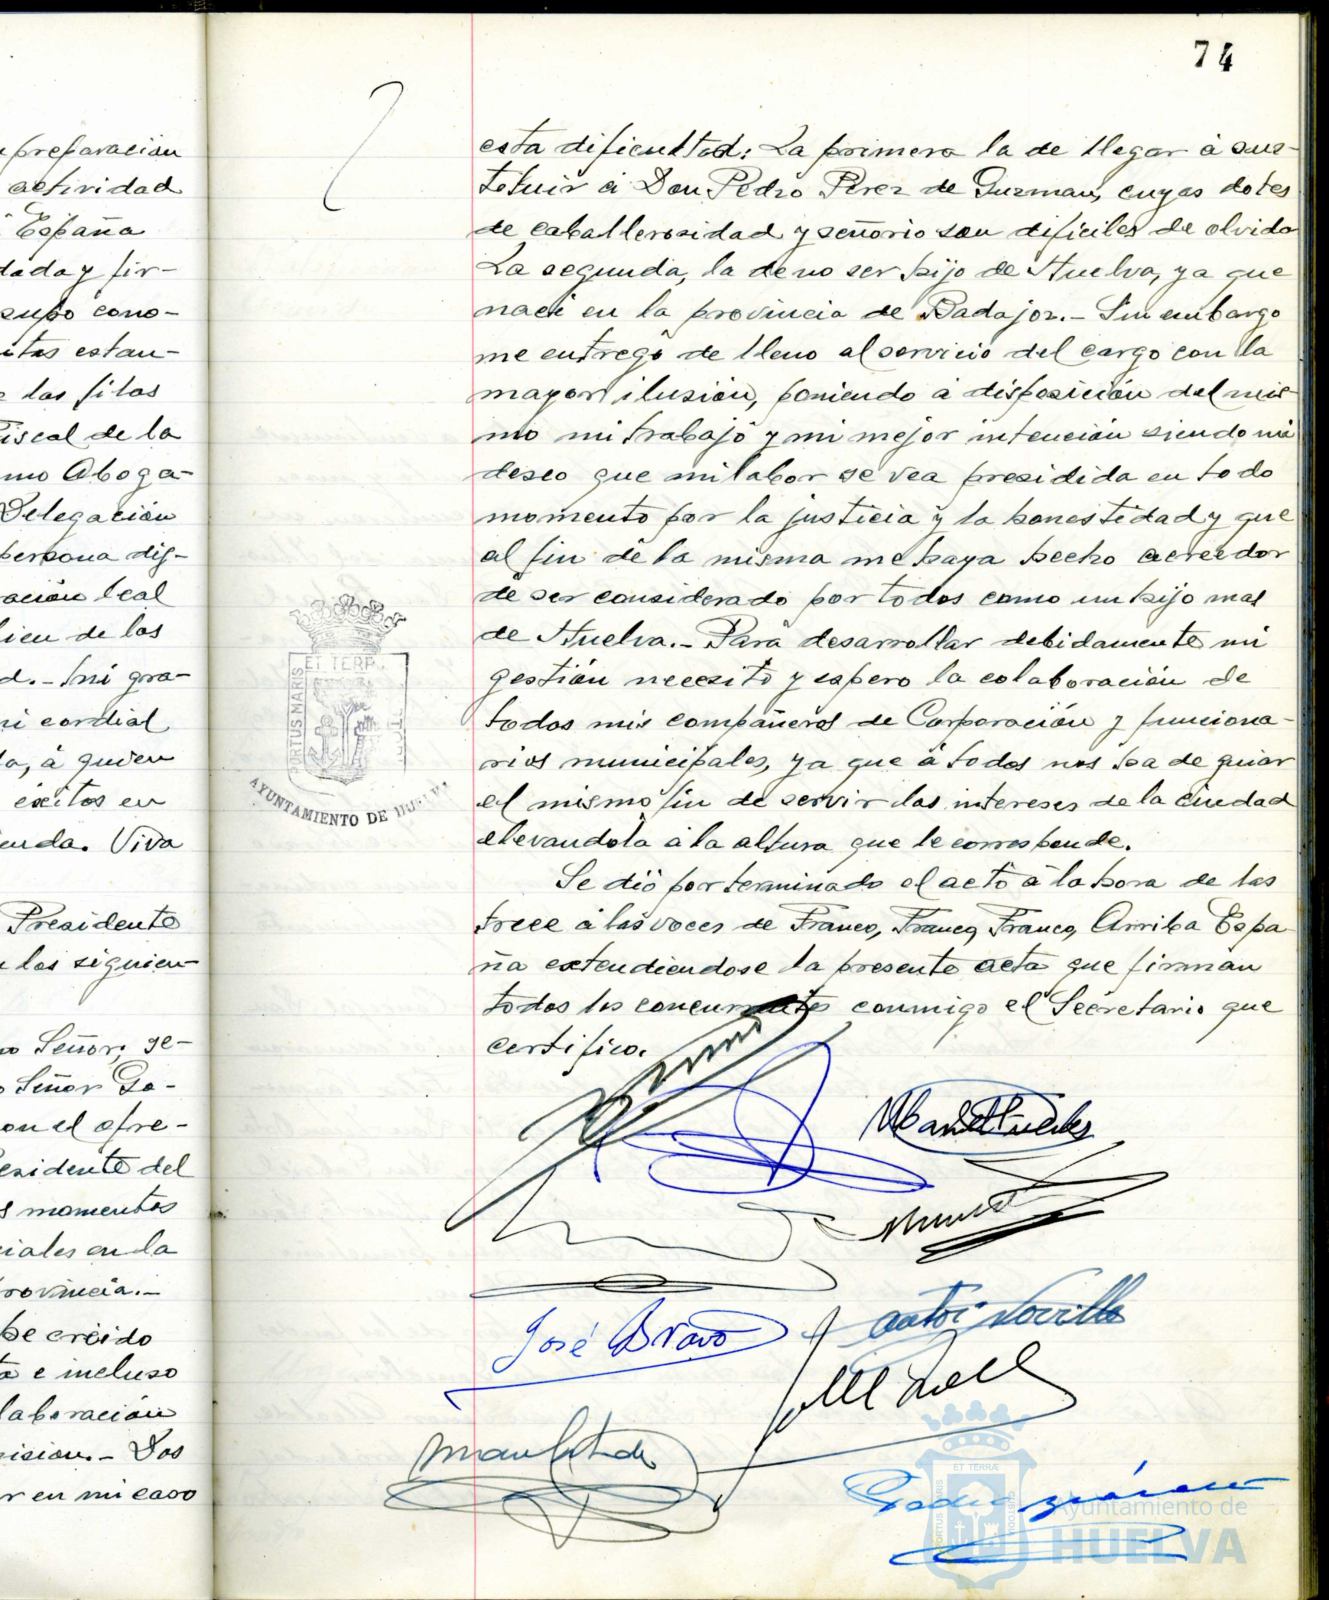 74
preparación
actividad
España
dada y fir-
supo cono-
estan-
las filas
Fiscal de la
mo Aboga-
Delegación
persona dig-
ración leal
bien de los
d.- Mi gra-
mi cordial
da, á quien
éxitos en
enda. Viva
Presidente
los siguien-
Señor, se-
Señor Go-
on el ofre-
residente del
s momentos
ciales en la
rovincia.-
he creido
e incluso
laboración
misión.- Dos
r en mi caso
esta dificultad: La primera la de llegar á sus-
tituir á Don Pedro Pérez de Guzman, cuyas dotes
de caballerosidad y señorio son dificiles de olvidar
La segunda, la de no ser hijo de Huelva, ya que
naci en la provincia de Badajoz.- Sin embargo
me entrego de lleno al servicio del cargo con la
mayor ilusión, poniendo á disposición del mis-
mo mi trabajo y mi mejor intención siendo mi
deseo que mi labor se vea presidida en todo
momento por la justicia y la honestidad y que
al fin de la misma me haya hecho acreedor
de ser considerado por todos como un hijo mas
de Huelva.- Para desarrollar debidamente mi
gestión necesito y espero la colaboración de
todos mis compañeros de Corporación y funciona-
rios municipales, ya que á todos nos ha de guiar
el mismo fin de servir los intereses de la ciudad
elevandola á la altura que le corresponde.
Se dió por terminado el acto á la hora de las
trece á las voces de Franco, Franco, Franco, Arriba Espa-
ña extendiendose la presente acta que firman
todos los concurrentes conmigo el Secretario que
certifico.
PORTUS MARIS
ET TERR
AYUNTAMIENTO DE HUELVA
José Bravo
PORTUS MARIS
ET TERRÆ
CUSTODIA
Ayuntamiento de
HUELVA